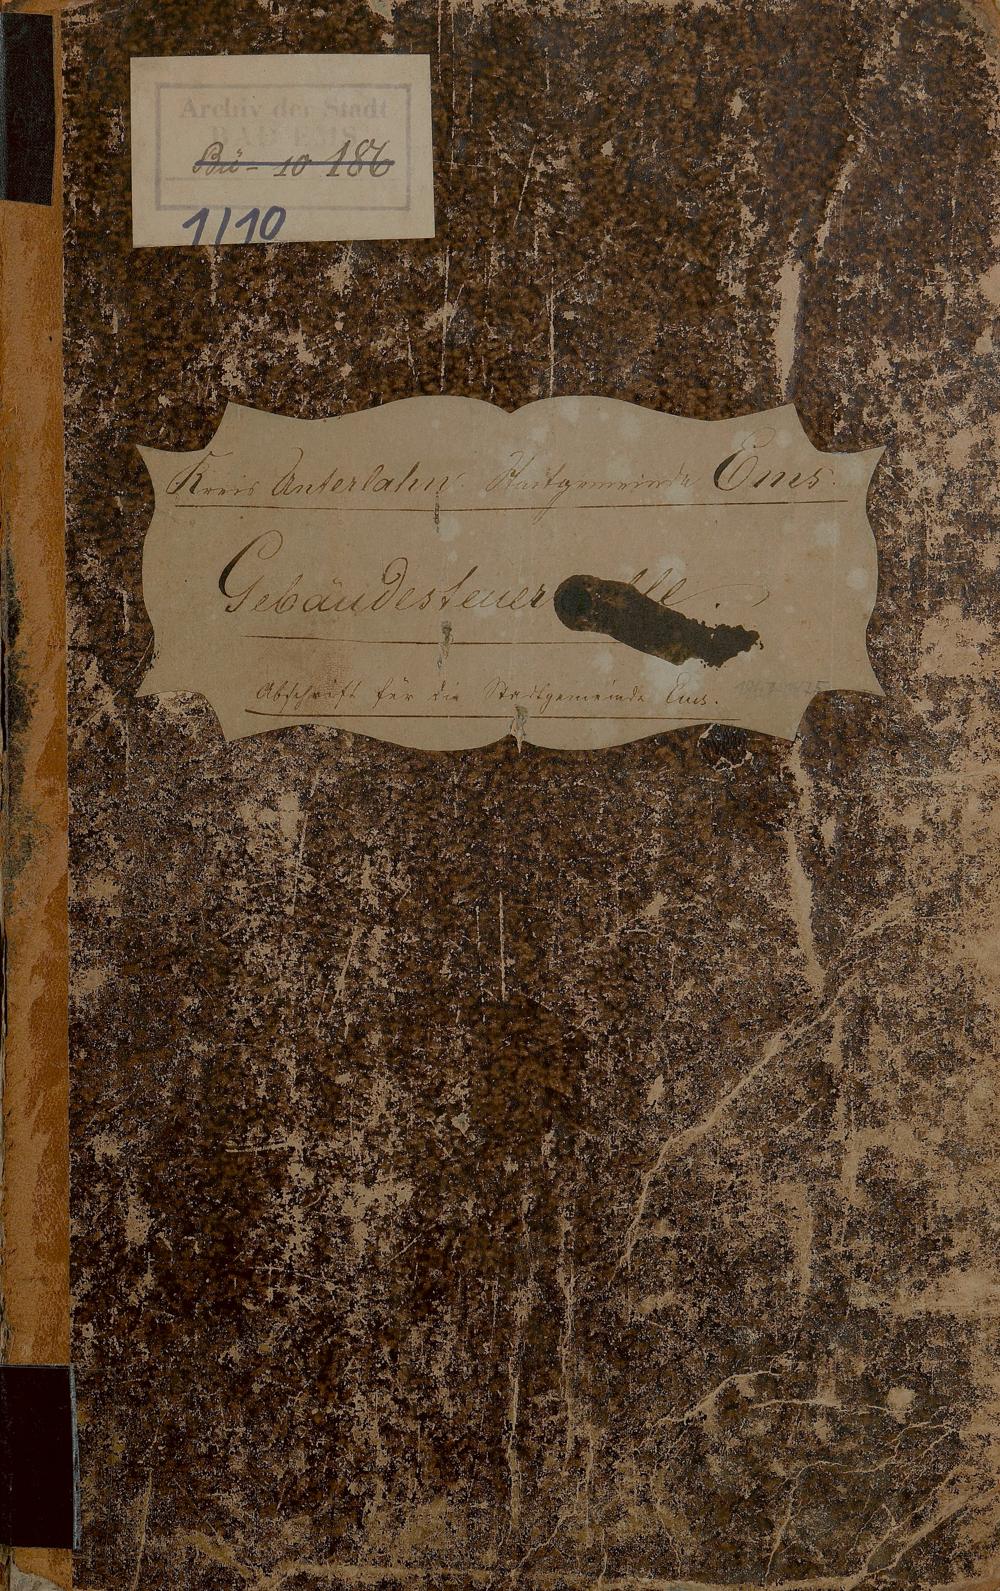 Archiv der Stadt
BAD EMS
Bü - 10 186
1/10
Kreis Unterlahn. Stadtgemeinde Ems.
Gebäudesteuer
Abschrift für die Stadtgemeinde Ems.